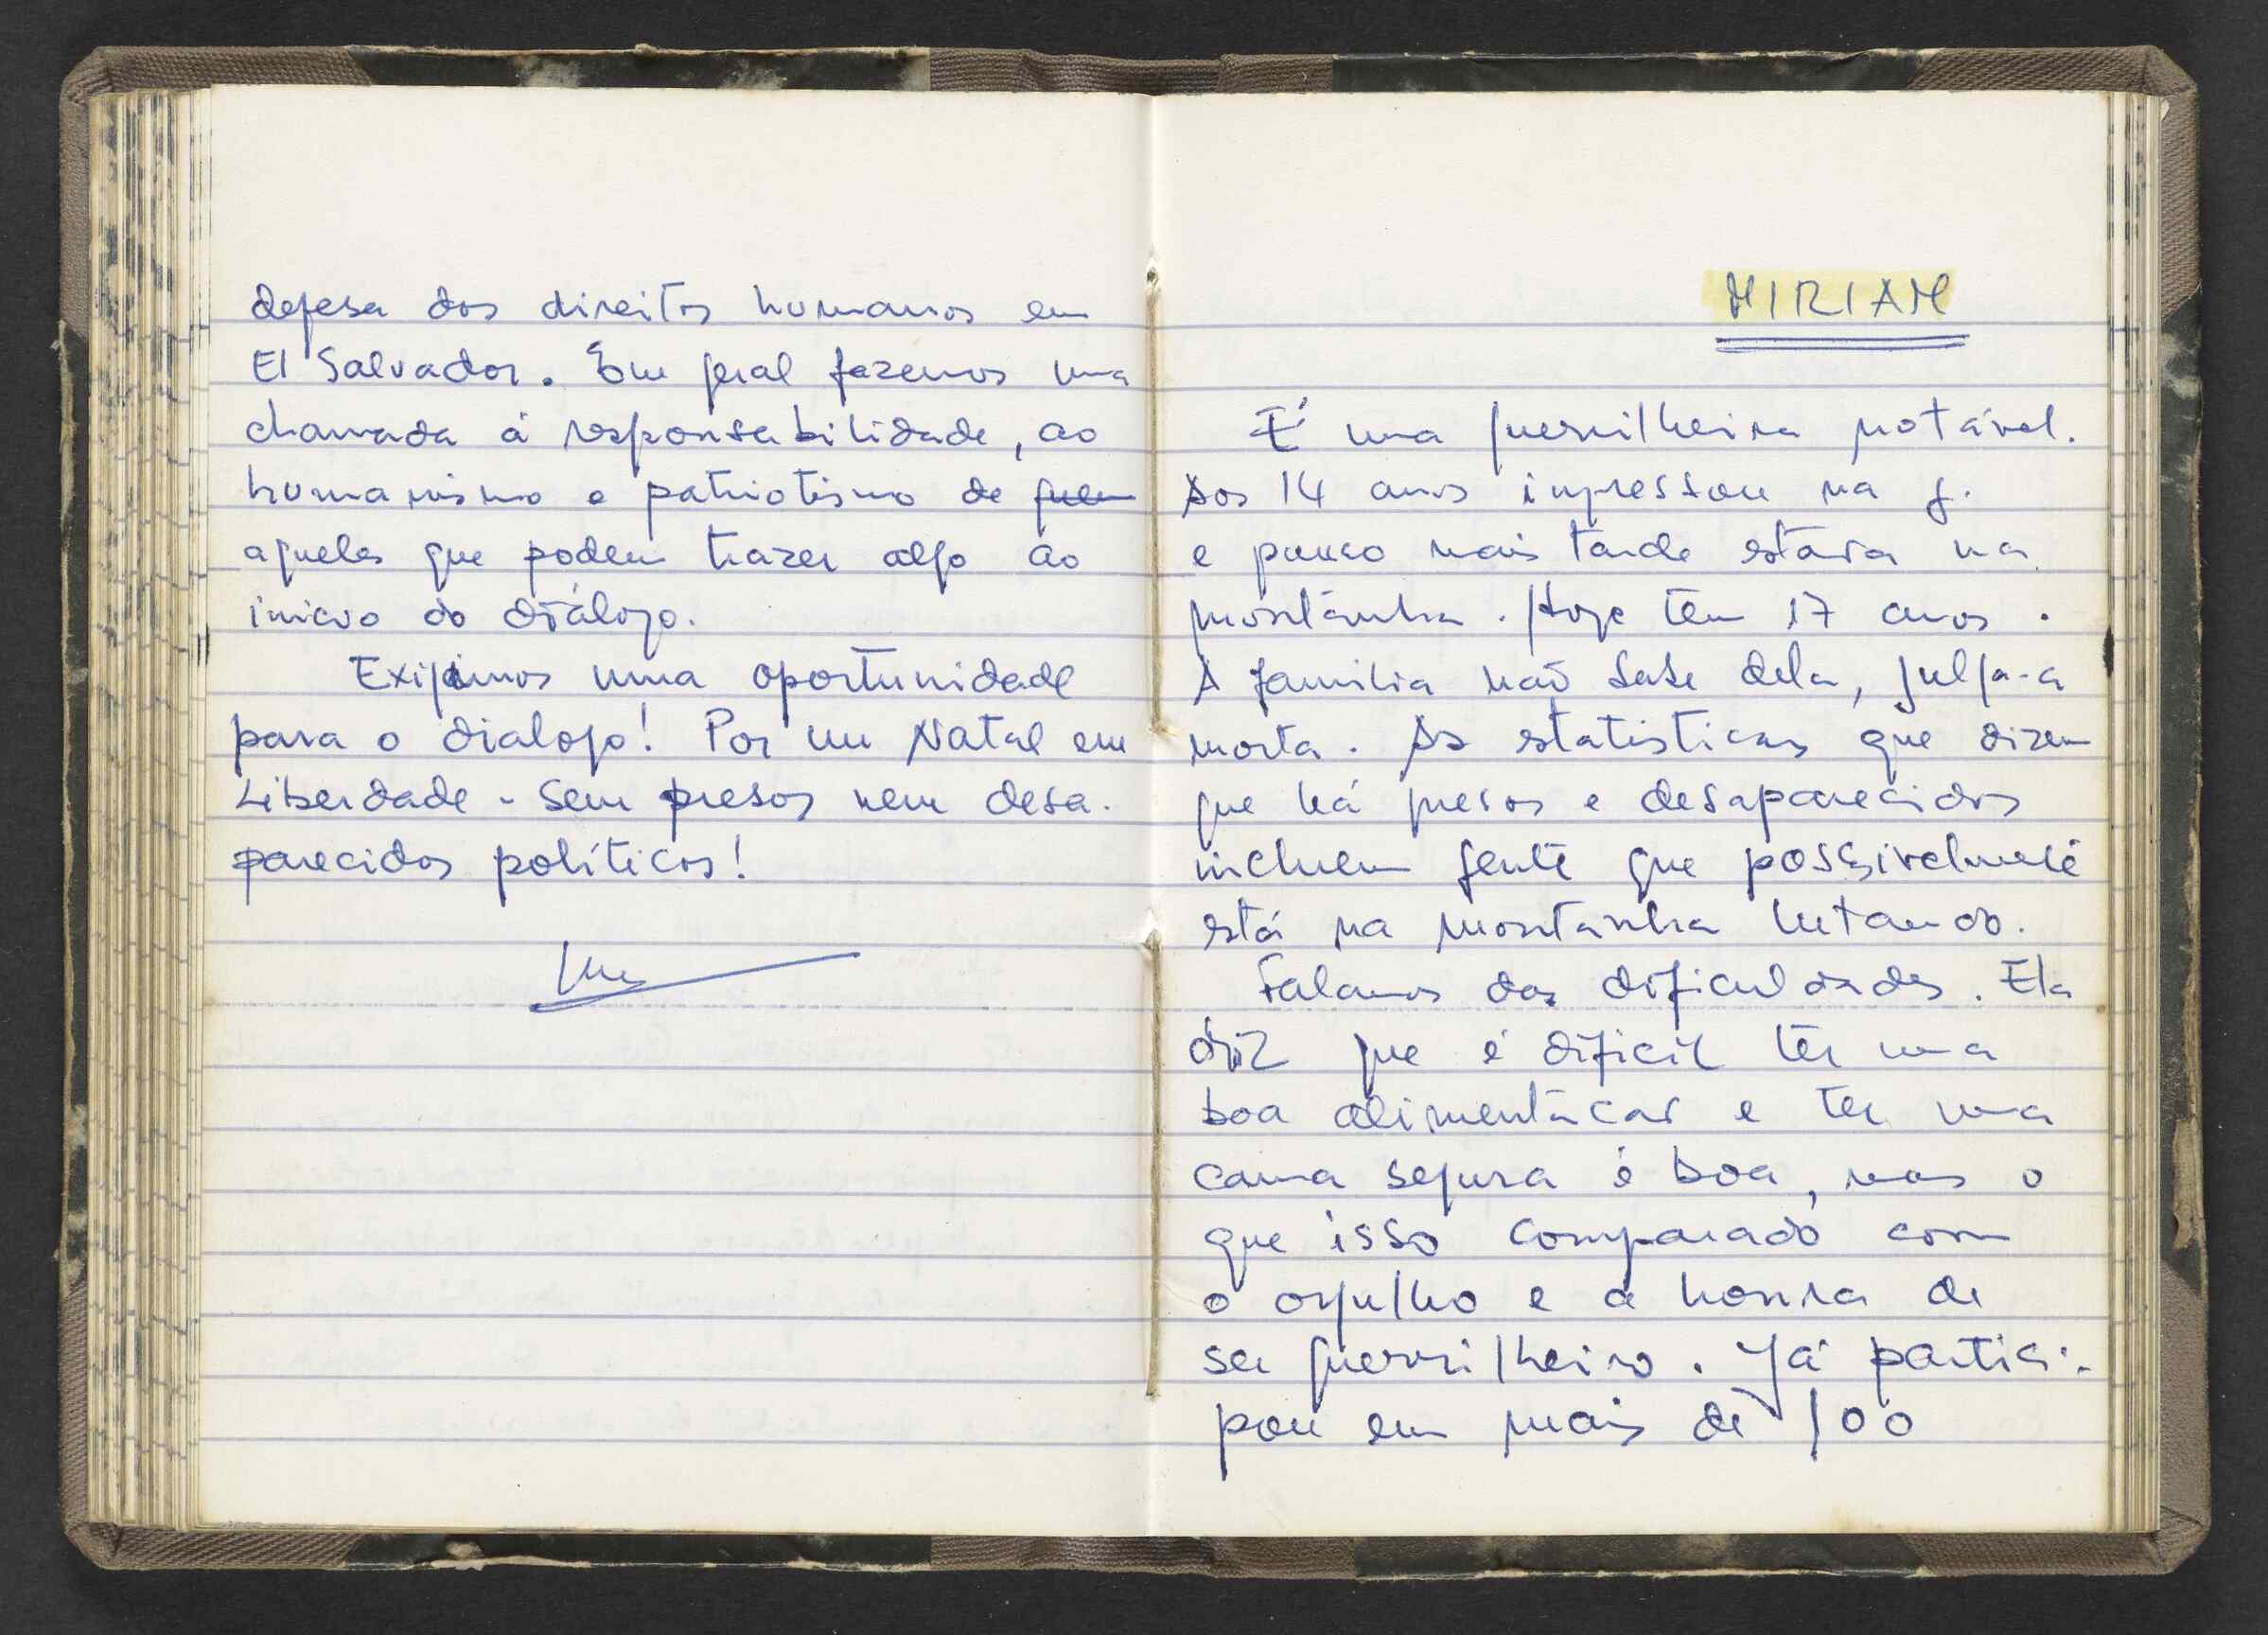 defesa dos direitos humanos em
El Salvador. Em geral fazemos uma
chamada à responsabilidade, ao
humanismo e patriotismo de quem
aqueles que podem trazer algo ao
inicio do diálogo.
Exigimos uma oportunidade
para o dialogo! Por um Natal em
Liberdade - Sem presos nem desa-
parecidos políticos!
MIRIAM
É uma guerrilheira notável.
Aos 14 anos ingressou na g.
e pouco mais tarde estava na
montanha. Hoje tem 17 anos.
A familia não sabe dela, julga-a
morta. As estatisticas que dizem
que há presos e desaparecidos
incluem gente que possivelmente
está na montanha lutando.
Falamos das dificuldades. Ela
diz que é dificil ter uma
boa alimentação e ter uma
cama segura é boa, mas o
que isso comparado com
o orgulho e a honra de
ser guerrilheiro. Já partici-
pou em mais de 100